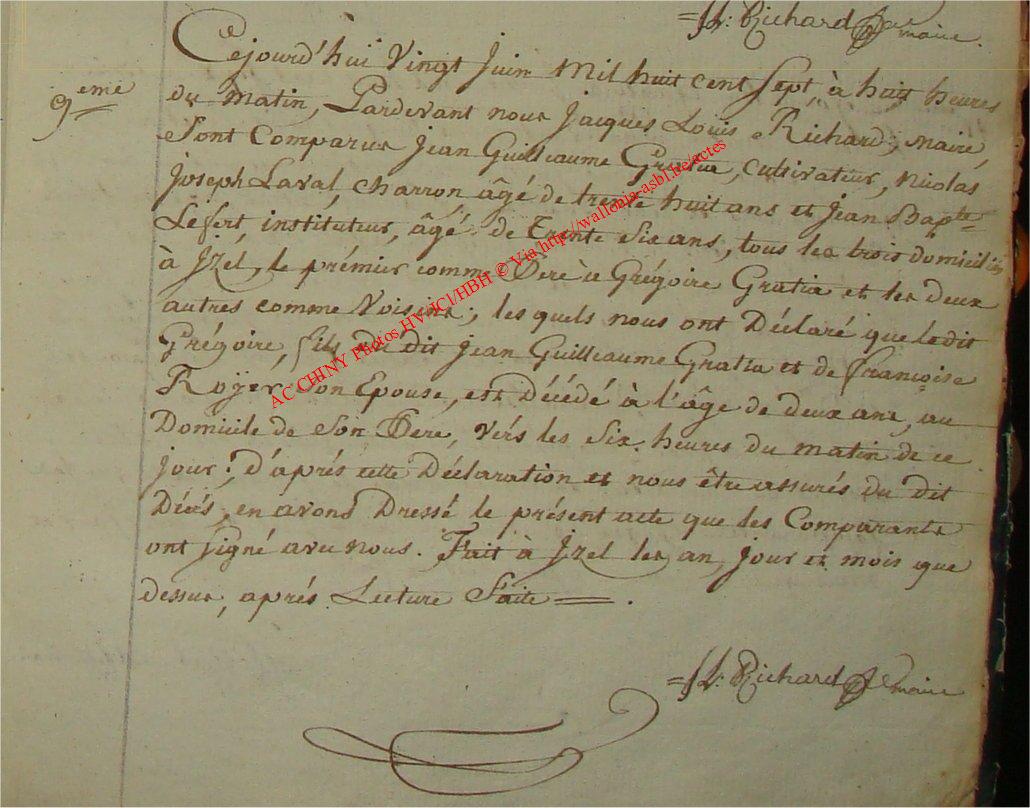 =JL: Richard
maire.
9eme
Cejourd'huï Vingt Juin Mil huit cent Sept, à huit heures
du Matin, Pardevant nous Jacques Louis Richard, maire,
Sont Comparus Jean Guilleaume Gratia, cultivateur, Nicolas
Joseph Laval, charron, âgé de trente huit ans et Jean Bapte
Lefort, instituteur, âgé de Trente Six ans, tous les trois domiciliés
à Jzel, le prémier comme Pere à Grégoire Gratia et les deux
autres comme Voisins, les quels nous ont Déclaré que ledit
Grégoire, fils du dit Jean Guilleaume Gratia et de françoise
Royer, Son Epouse, est Décédé à l'âge de deux ans, au
Domicile de Son Pere, vérs les Six heures du matin de ce
jour: d'aprés cette Déclaration et nous être assurés du dit
Décés, en avons Dressé le présent acte que les Comparants
ont Signé avec nous. Fait à Jzel les an, jour et mois que
dessus, aprés Lecture Faite =.
=JL: Richard
maire
AC CHINY Photos HV/JCl/HBH © Via http://wallonia-asbl.be/actes